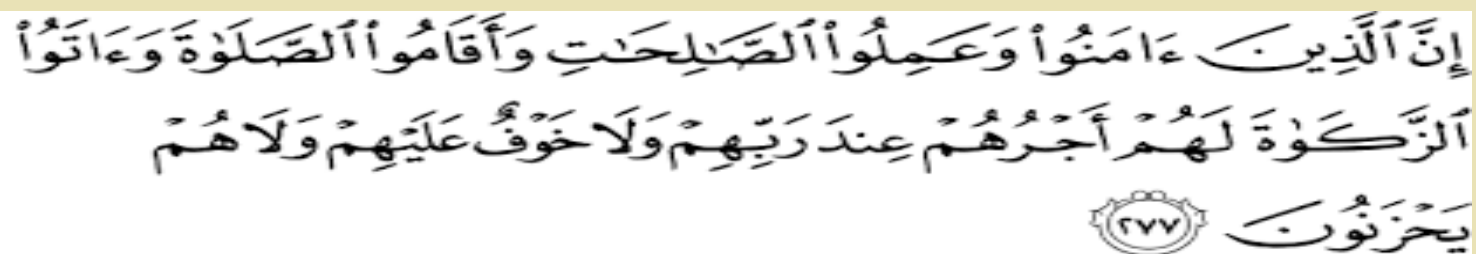 إِنَّ ٱلَّذِينَ ءَامَنُوا۟ وَعَمِلُوا۟ ٱلصَّـٰلِحَـٰتِ وَأَقَامُوا۟ ٱلصَّلَوٰةَ وَءَاتَوُا۟
ٱلزَّكَوٰةَ لَهُمْ أَجْرُهُمْ عِندَ رَبِّهِمْ وَلَا خَوْفٌ عَلَيْهِمْ وَلَا هُمْ
يَحْزَنُونَ ٢٧٧